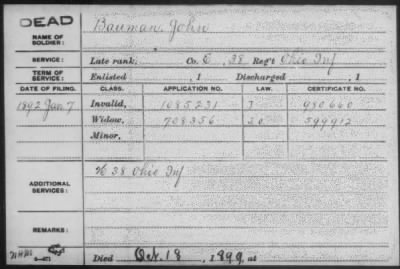 DEAD
NAME OF SOLDIER: Bauman, John
SERVICE: Late rank, Co. E, 38 Reg't Ohio Inf
TERM OF SERVICE: Enlisted , 1 Discharged , 1
DATE OF FILING. CLASS. APPLICATION NO. LAW. CERTIFICATE NO.
1892 Jan 7 Invalid, 1085231 J 980660
Widow, 708356 20 599912
Minor,
ADDITIONAL SERVICES: 38 Ohio Inf
REMARKS:
Died Oct. 18, 1899, at